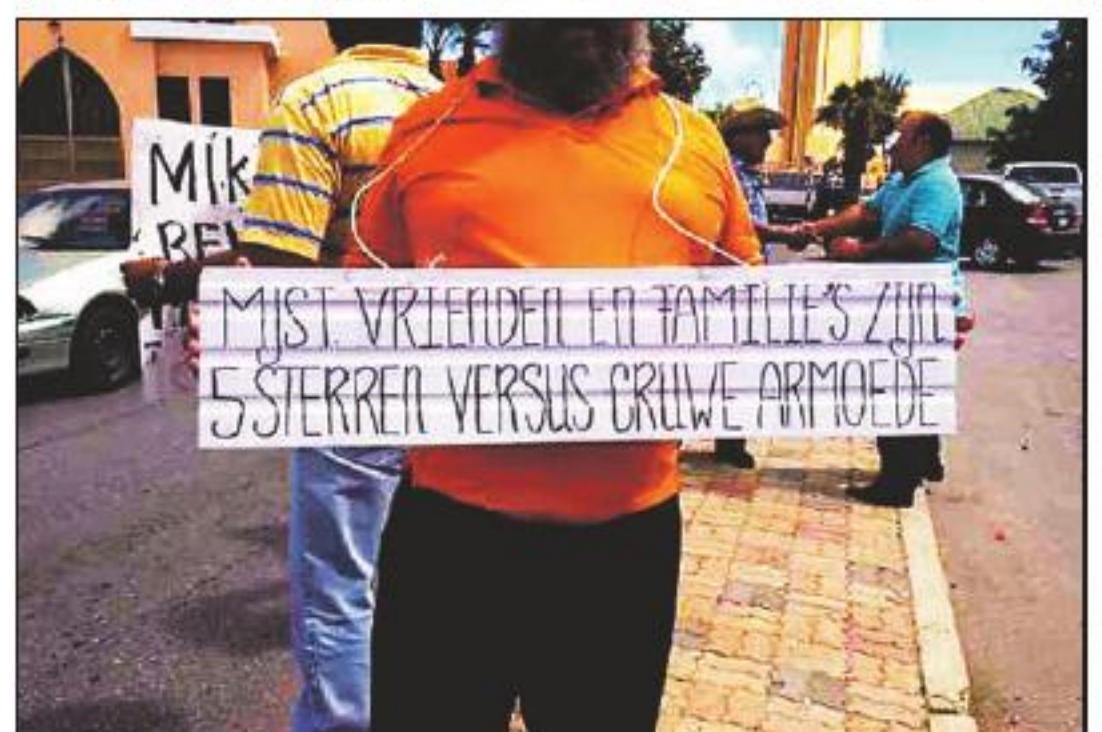 MIK
BE
MIJST. VRIENDEN EN FAMILIE'S ZIJN
5 STERREN VERSUS CRUWE ARMOEDE